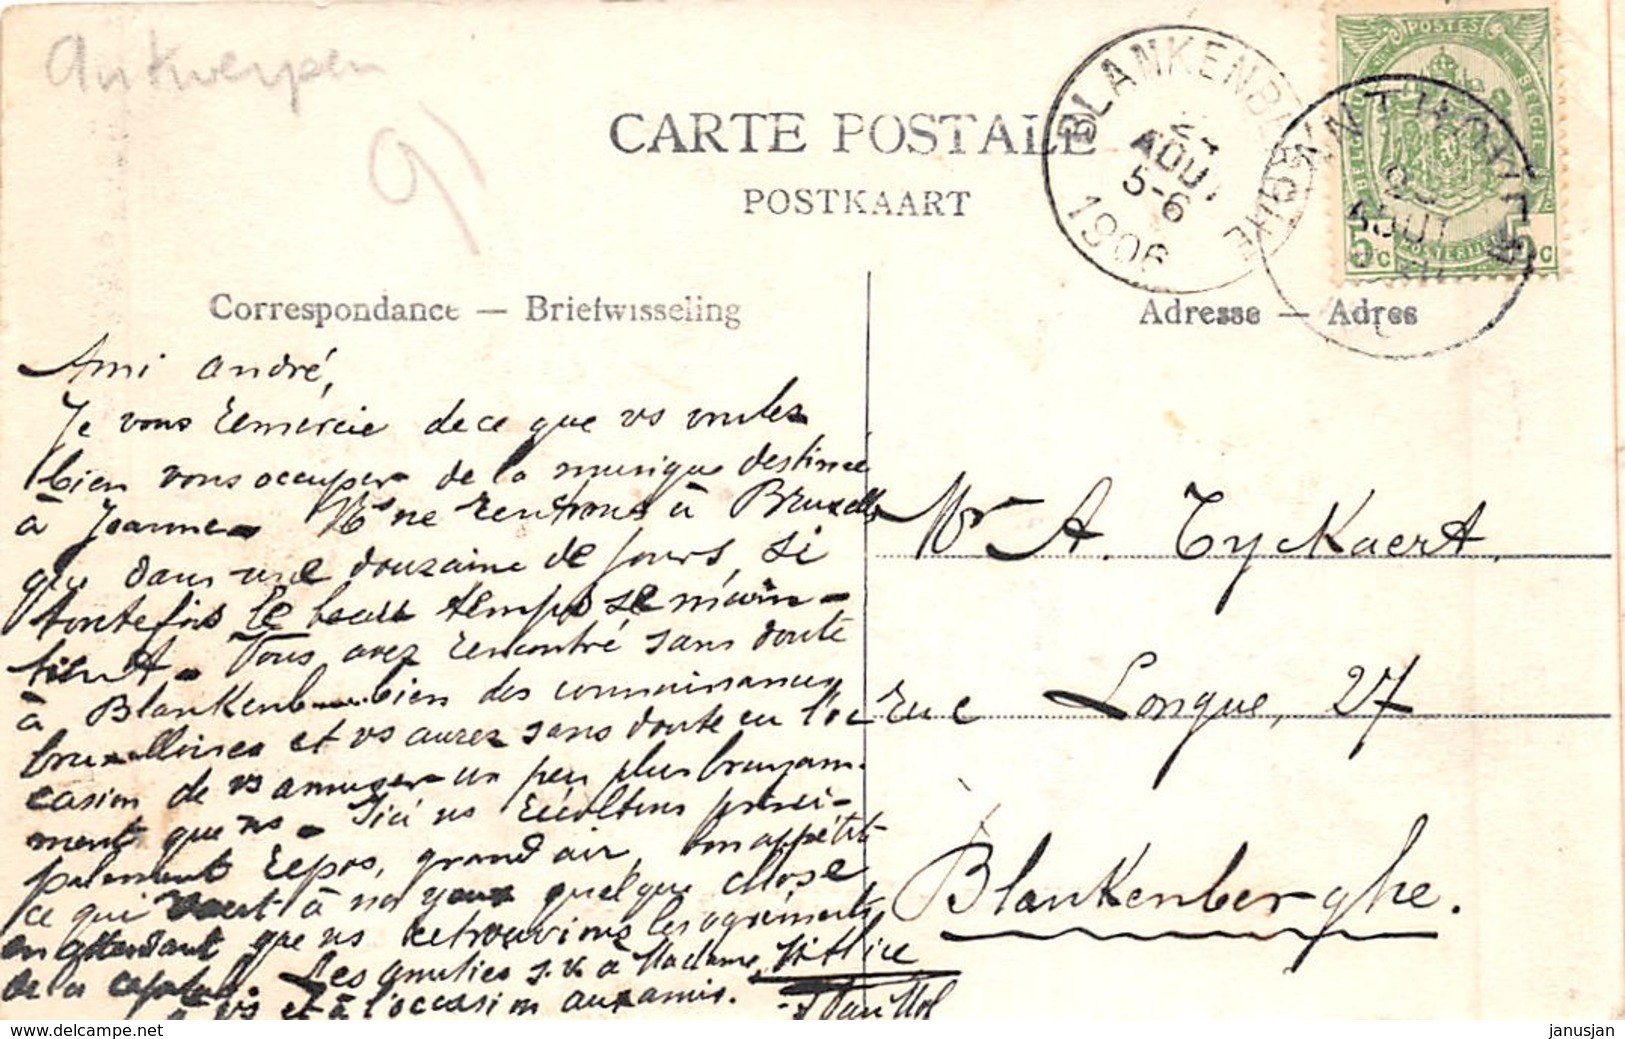 Antwerpen
91
CARTE POSTALE
POSTKAART
BLANKENBERGHE
24
AOUT
5-6
1906
POSTES
BELGIQUE
BELGIE
5 c
5 c
POSTERIJEN
AOUT
Correspondance — Briefwisseling
Adresse — Adres
Ami André,
Je vous remercie de ce que vs voulez
bien vous occuper de la musique destinée
à Jeanne. Ns ne rentrons à Bruxelles
que dans une douzaine de jours, si
toutefois le beau temps se main-
tient. Vous avez rencontré sans doute
à Blankenb bien des connaissances
bruxelloises et vs aurez sans doute eu l'oc
casion de vs amuser un peu plus bruyam-
ment que ns. Ici ns récoltons princi-
palement repos, grand air, bon appétit
ce qui vaut à nos yeux quelque chose
en attendant que ns retrouvions les agréments
de la capitale. Les amitiés s.v.à Madame
à vs et à l'occasion aux amis.
Mr A. Tyckaert.
rue Longue, 27
Blankenberghe.
delcampe.net
janusjan